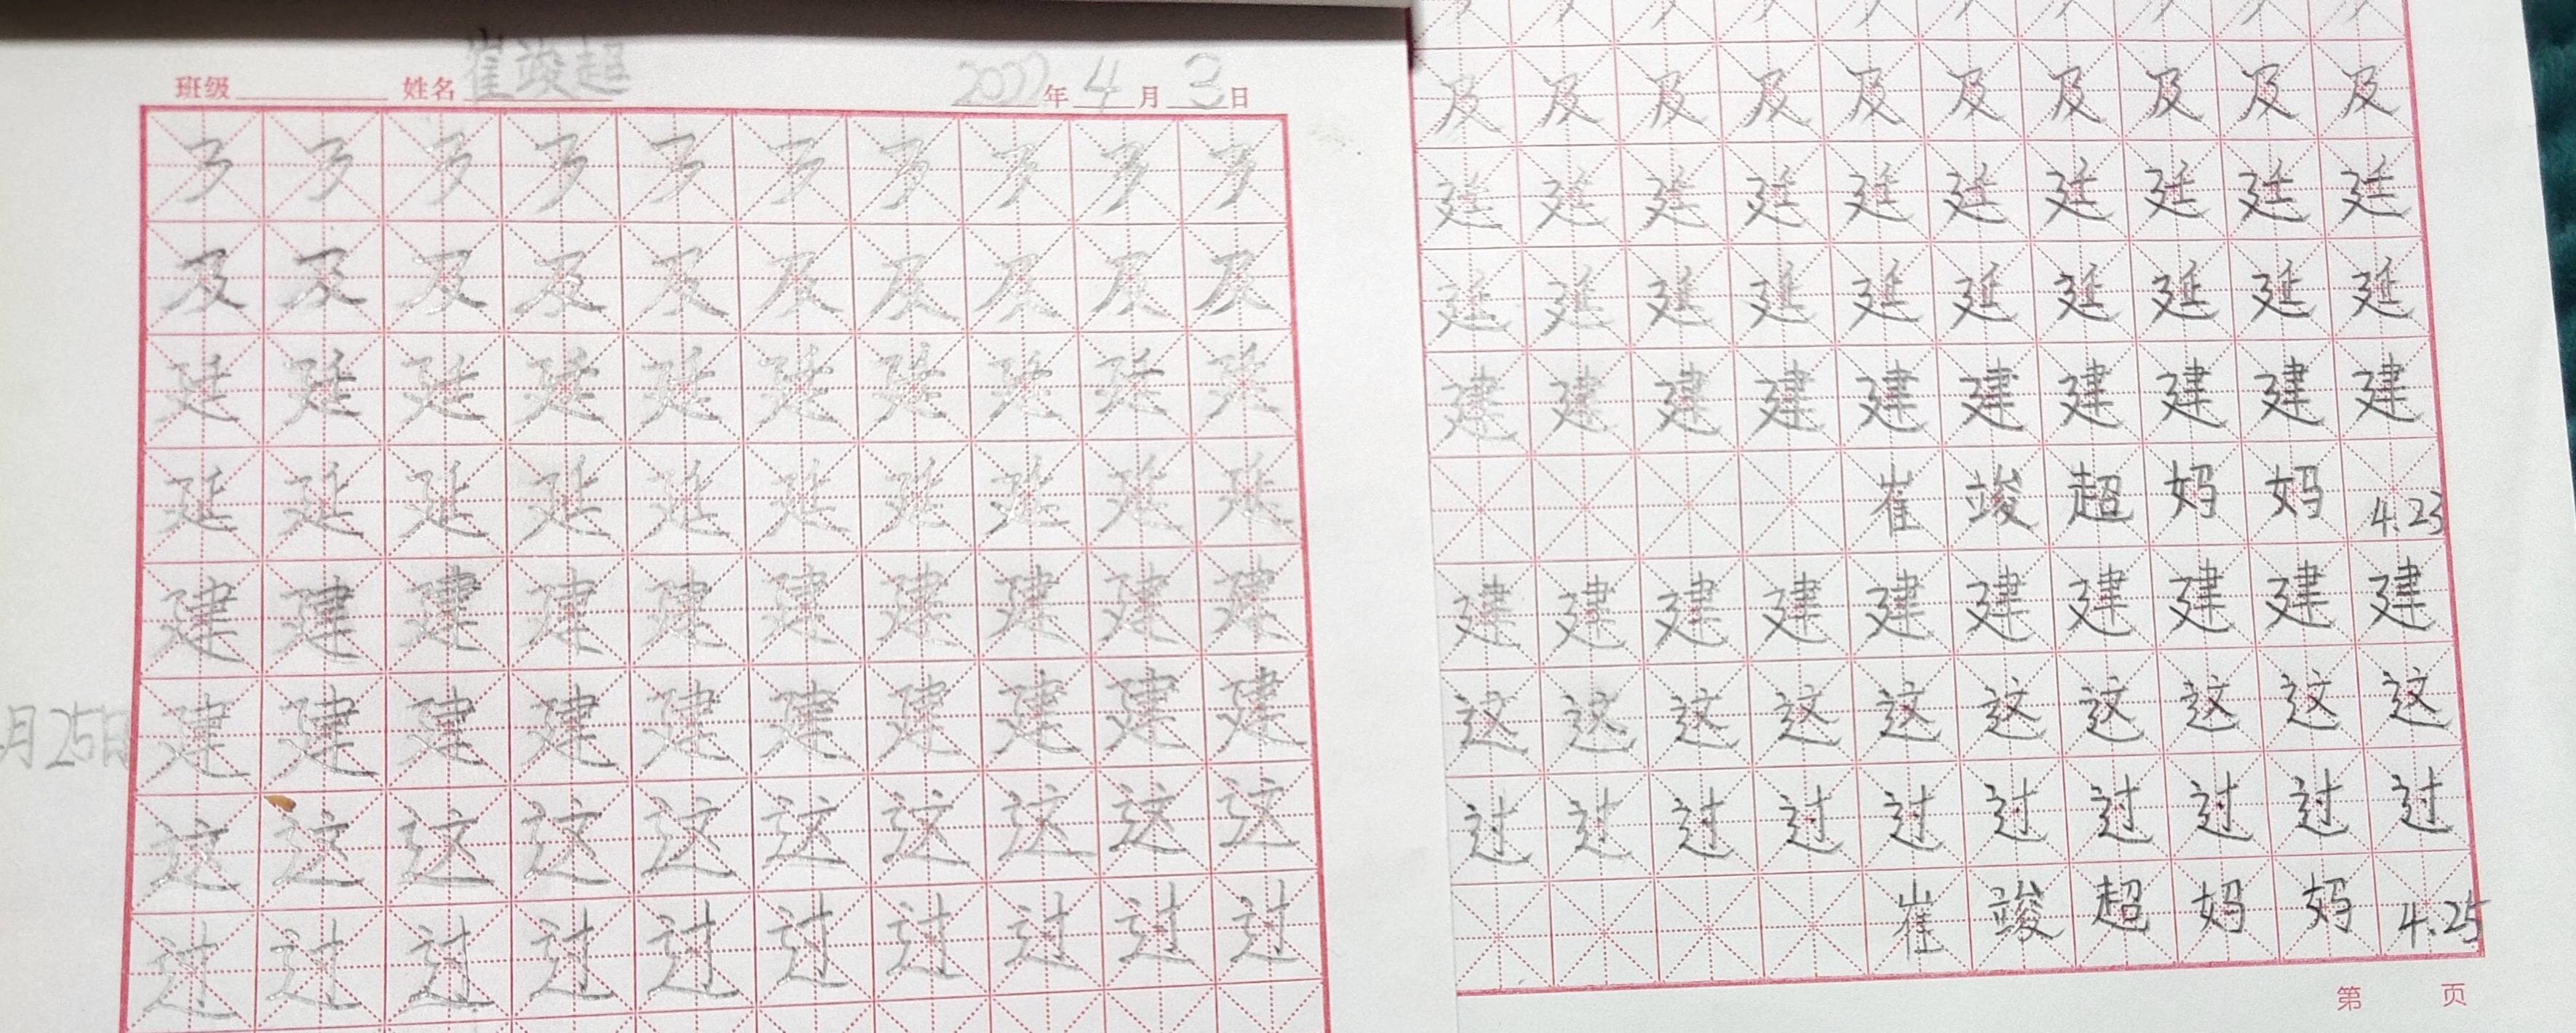 班级 姓名 崔竣超 2022年4月3日
及 及 及 及 及 及 及 及 及 及
廷 廷 廷 廷 廷 廷 廷 廷 廷 廷
延 延 延 延 延 延 延 延 延 延
建 建 建 建 建 建 建 建 建 建
月25日 建 建 建 建 建 建 建 建 建 建
这 这 这 这 这 这 这 这 这 这
过 过 过 过 过 过 过 过 过 过
及 及 及 及 及 及 及 及 及 及
廷 廷 廷 廷 廷 廷 廷 廷 廷 廷
延 延 延 延 延 延 延 延 延 延
建 建 建 建 建 建 建 建 建 建
崔 竣 超 妈 妈 4.23
建 建 建 建 建 建 建 建 建 建
这 这 这 这 这 这 这 这 这 这
过 过 过 过 过 过 过 过 过 过
崔 竣 超 妈 妈 4.25
第 页